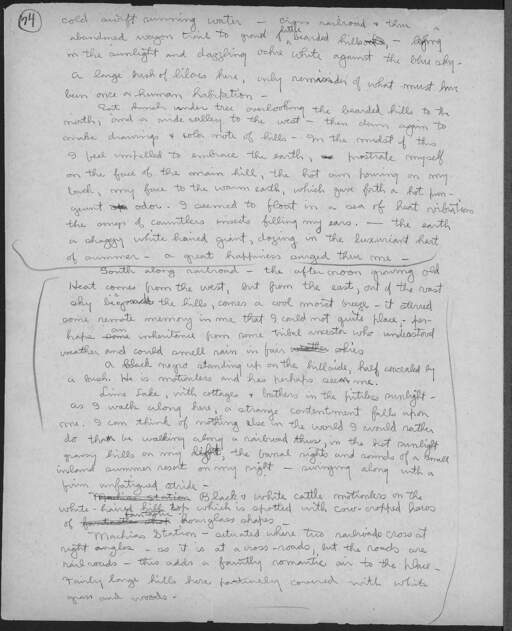 74
cold swift running water — cross railroad & thru
abandoned wagon trail to group of little bearded hills, — lying
in the sunlight and dazzling ochre white against the blue sky.
A large bush of lilacs here, only reminder of what must have
been once a human habitation —
Eat lunch under tree overlooking the bearded hills to the
north, and a wide valley to the west — then down again to
make drawings & color note of hills — In the midst of this
I feel impelled to embrace the earth, prostrate myself
on the face of the main hill, the hot sun pouring on my
back, my face to the warm earth, which gave forth a hot pun-
gent odor. I seemed to float in a sea of heat vibrations
the songs of countless insects filling my ears. — the earth
a shaggy white haired giant, dozing in the luxuriant heat
of summer — a great happiness surged thru me —
South along railroad — the afternoon growing old
Heat comes from the west, but from the east, out of the vast
sky beyond the hills, comes a cool moist breeze — it stirred
some remote memory in me that I could not quite place, — per-
haps an inheritance from some tribal ancestor who understood
weather and could smell rain in fair skies
A black negro standing up on the hillside, half concealed by
a bush. He is motionless and has perhaps seen me.
Lime Lake, with cottages & bathers in the pitiless sunlight —
as I walk along here, a strange contentment falls upon
me. I can think of nothing else in the world I would rather
do than be walking along a railroad thus, in the hot sunlight
grassy hills on my left, the banal sights and sounds of a small
inland summer resort on my right — swinging along with a
firm unfatigued stride —
Machias Station Black & white cattle motionless on the
white-haired hill top which is spotted with cow-cropped horos
of fantastic hourglass shapes —
Machias Station — situated where two railroads cross at
right angles — as it is at a cross-roads, but the roads are
railroads — this adds a faintly romantic air to the place —
Fairly large hills here, covered with white
grass and woods —